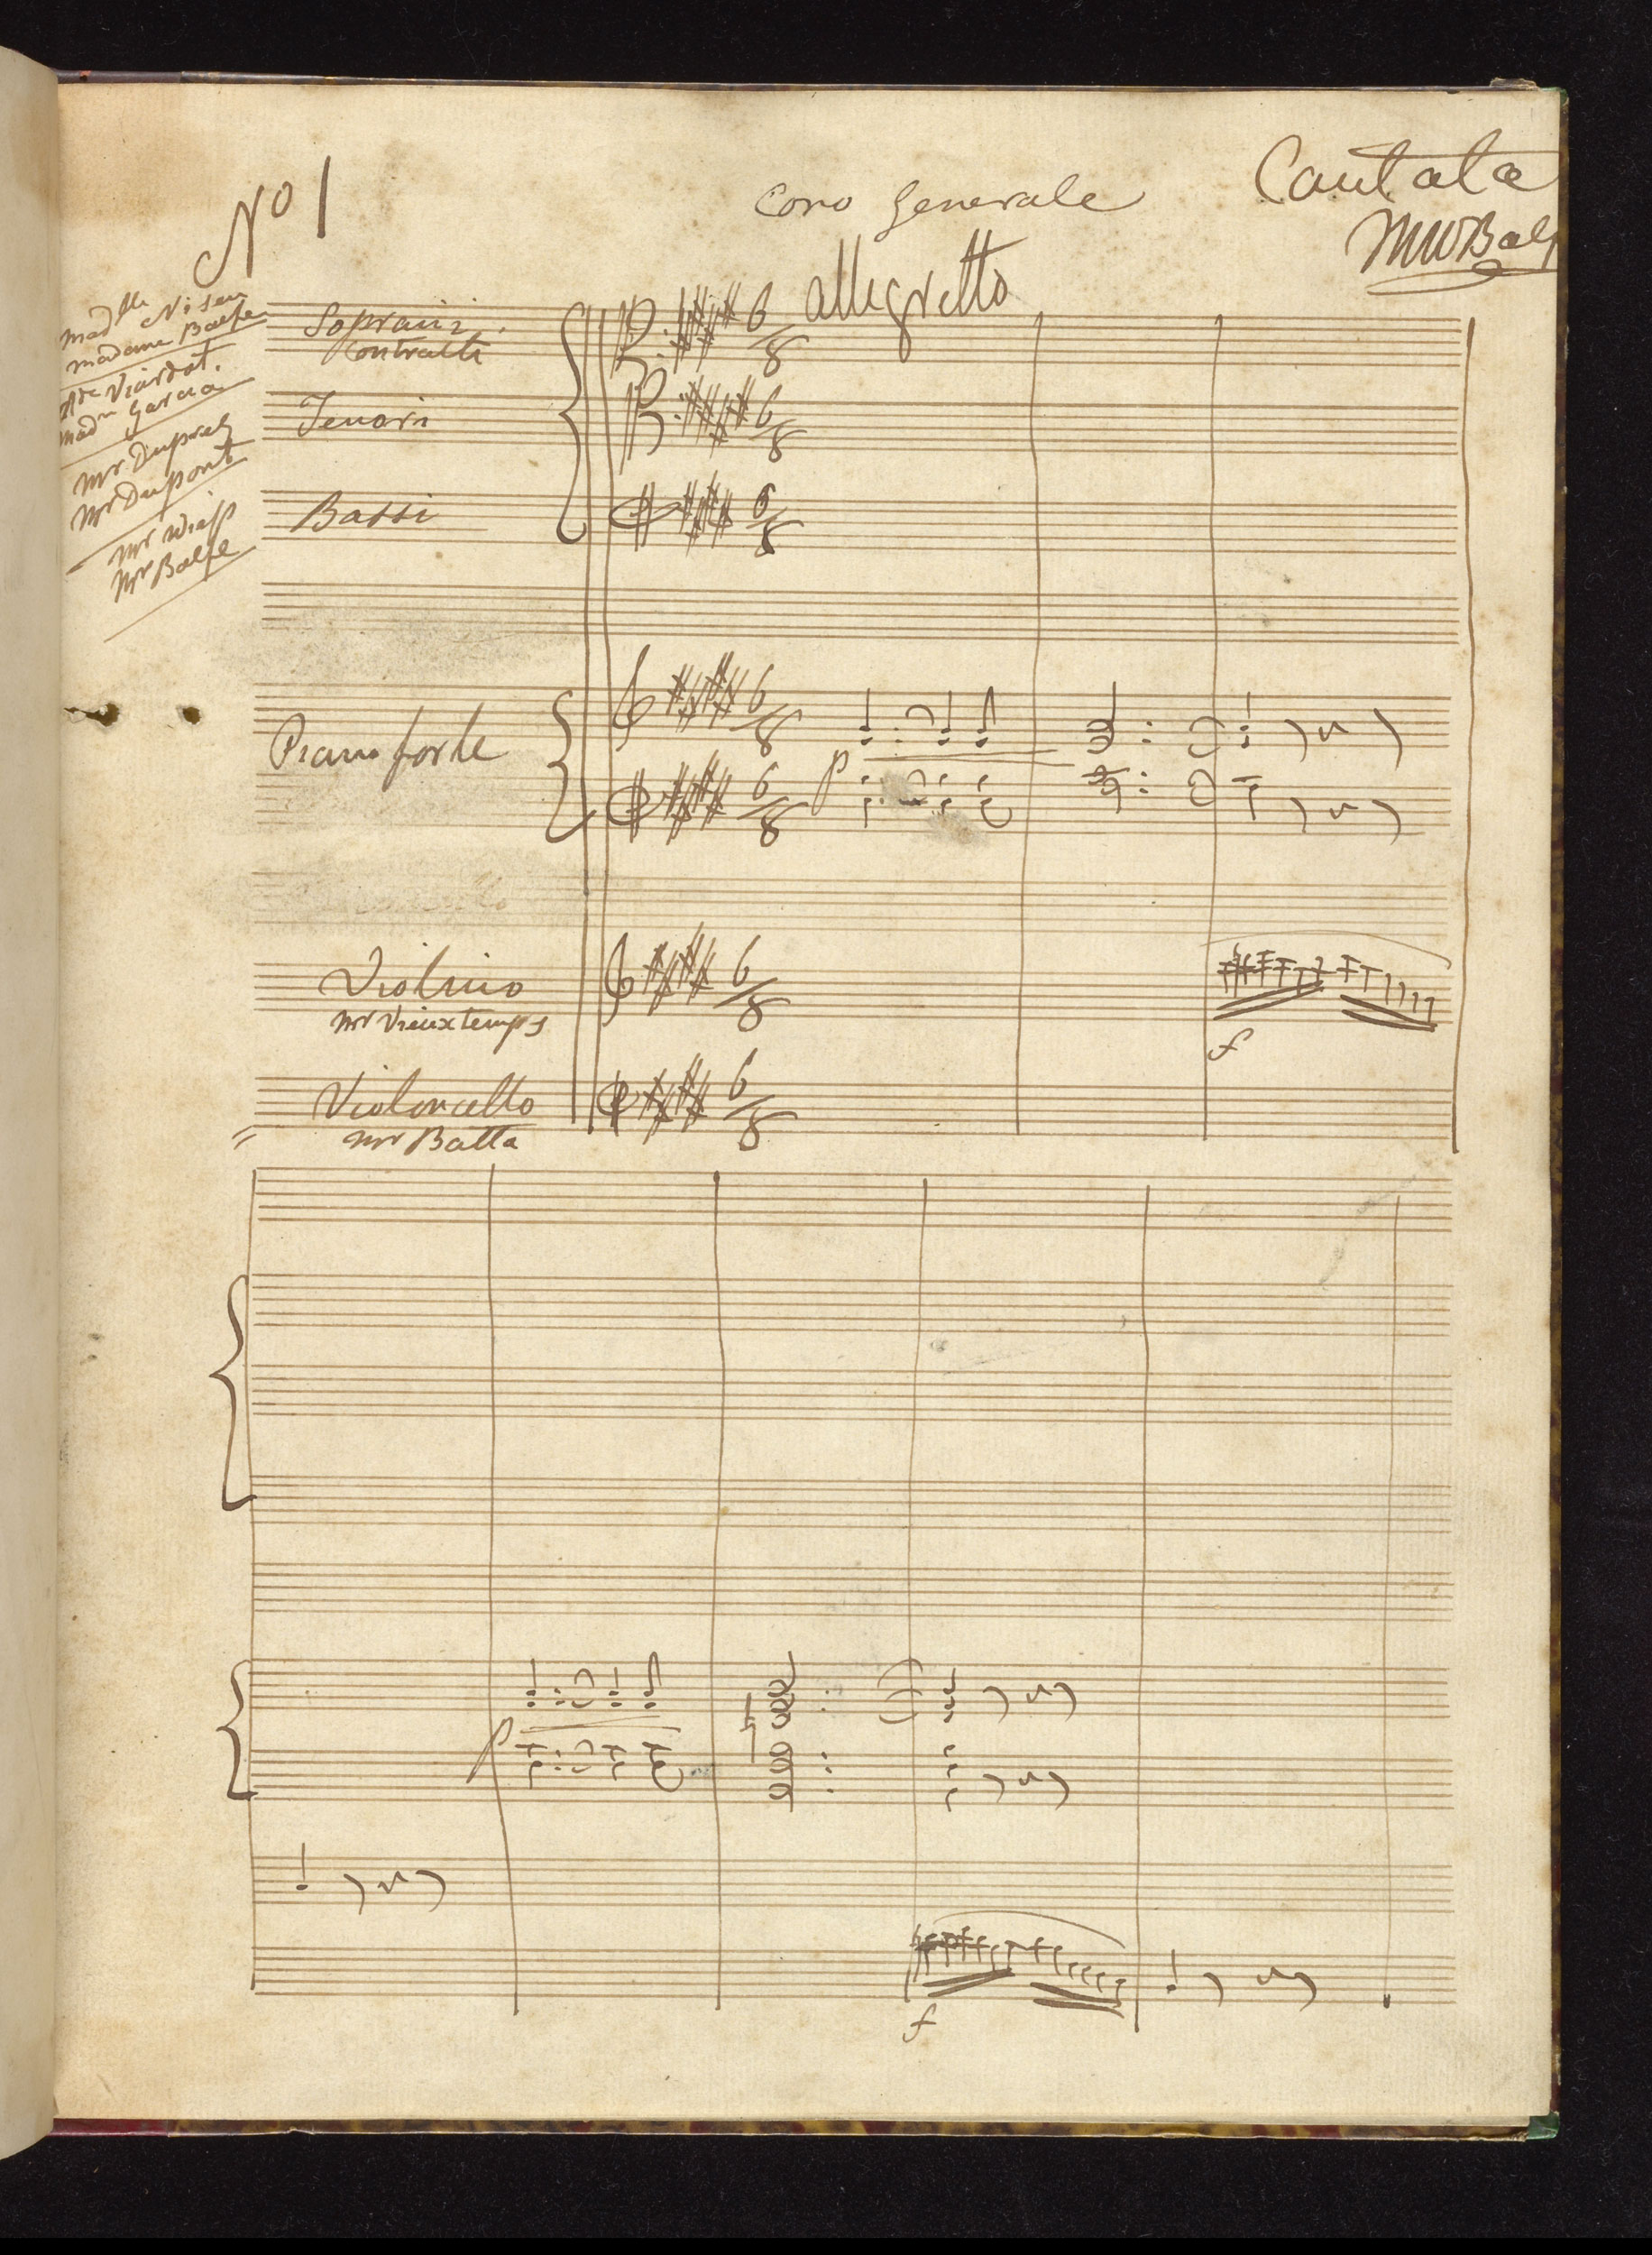 No 1
Coro Generale
Cantata
MWBalf
allegretto
Madlle Nisen
Madame Balfe
Mde Viardot.
Madm Garcia
Mr Duprez
Mr Dupont
Mr Balfe
Soprani
Contralti
Tenori
Bassi
6/8
6/8
6/8
Piano forte
6/8
6/8
p
Violino
Mr Vieuxtemps
6/8
f
Violoncello
Mr Batta
6/8
p
f